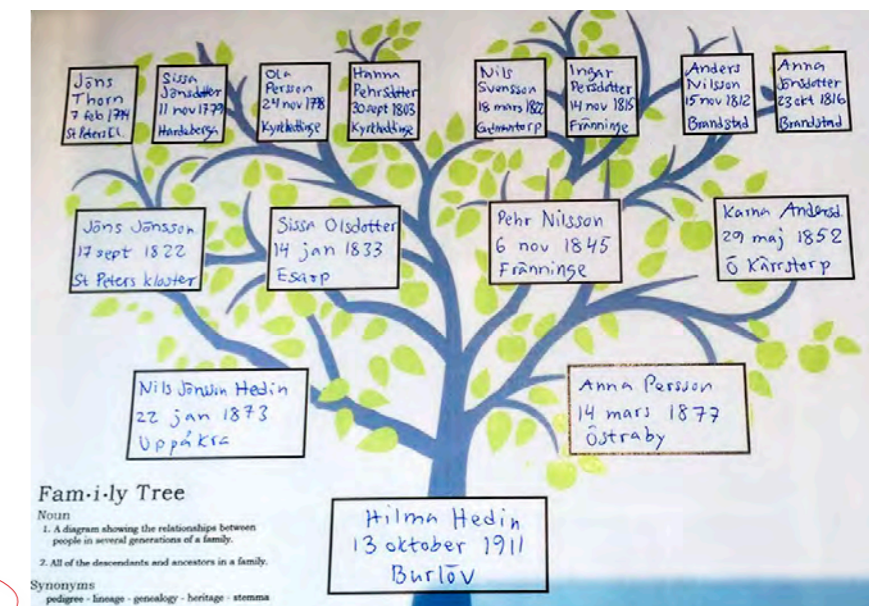 Jöns
Thorn
7 feb
St Peters Kl.
Sissa
Jönsdotter
11 nov 1779
Hardeberga
Ola
Persson
24 nov
Kyrkheddinge
Hanna
Pehrsdotter
30 sept 1803
Kyrkheddinge
Nils
Svensson
18 mars
Ingar
Persdotter
14 nov 1815
Fränninge
Anders
Nilsson
15 nov 1812
Brandstad
Anna
Jönsdotter
23 okt 1816
Brandstad
Jöns Jönsson
17 sept 1822
St Peters kloster
Sissa Olsdotter
14 jan 1833
Esarp
Pehr Nilsson
6 nov 1845
Fränninge
Karna Andersd.
29 maj 1852
Ö Kärrstorp
Nils Jönsson Hedin
22 jan 1873
Uppåkra
Anna Persson
14 mars 1877
Östraby
Hilma Hedin
13 oktober 1911
Burlöv
Fam·i·ly Tree
Noun
1. A diagram showing the relationships between
people in several generations of a family.
2. All of the descendants and ancestors in a family.
Synonyms
pedigree - lineage - genealogy - heritage - stemma